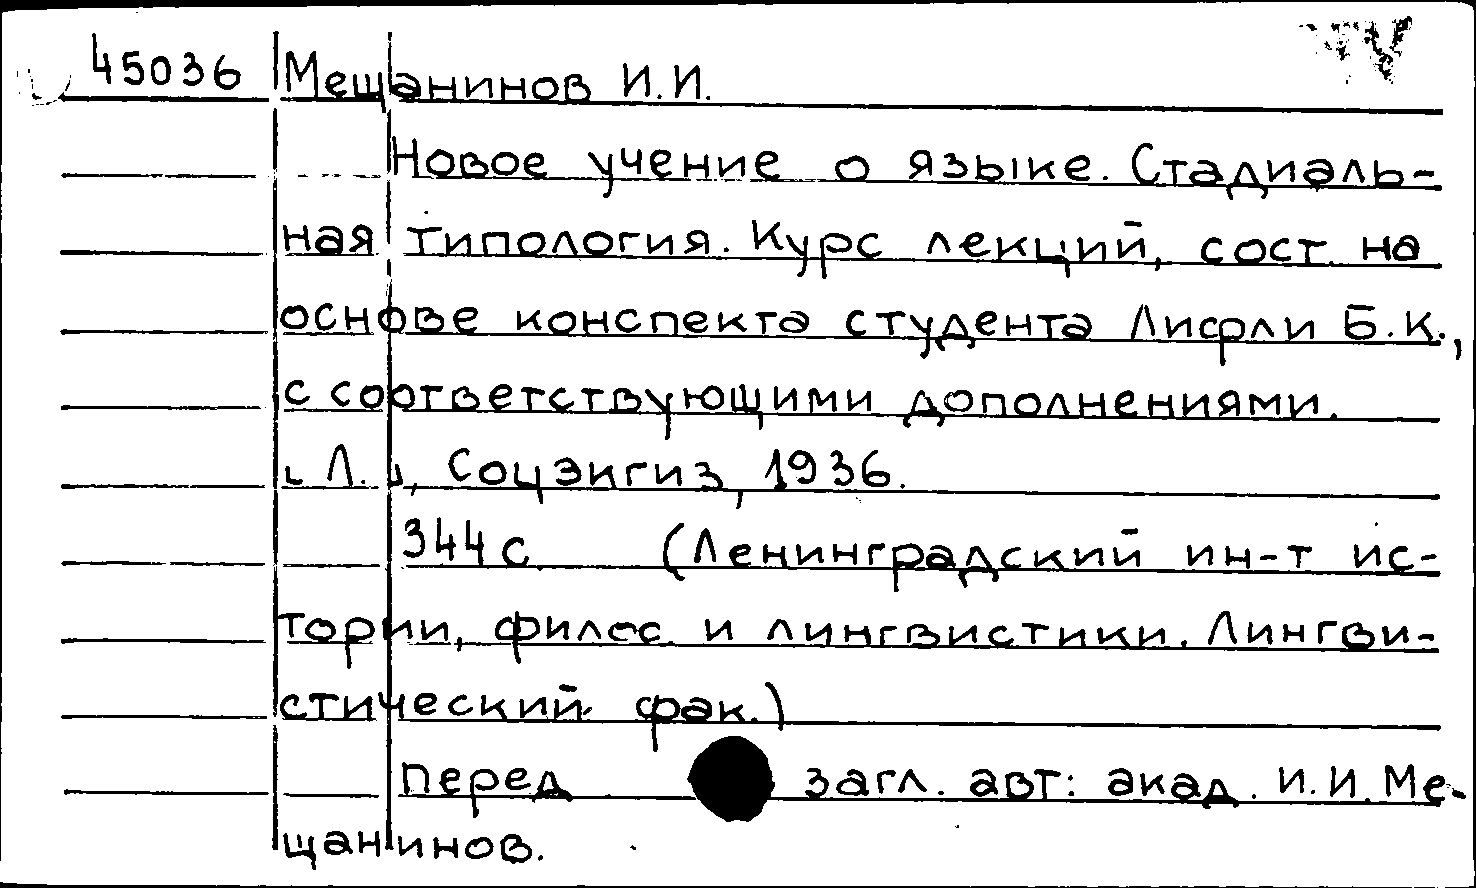 45036 Мещанинов И.И.
Новое учение о языке. Стадиаль-
ная типология. Курс лекций, сост. на
основе конспекта студента Лисфли Б.К.,
с соответствующими дополнениями.
[Л.], Соцэкгиз, 1936.
344с. (Ленинградский ин-т ис-
тории, филос. и лингвистики. Лингви-
стический фак.)
Перед загл. авт: акад. И.И. Ме-
щанинов.